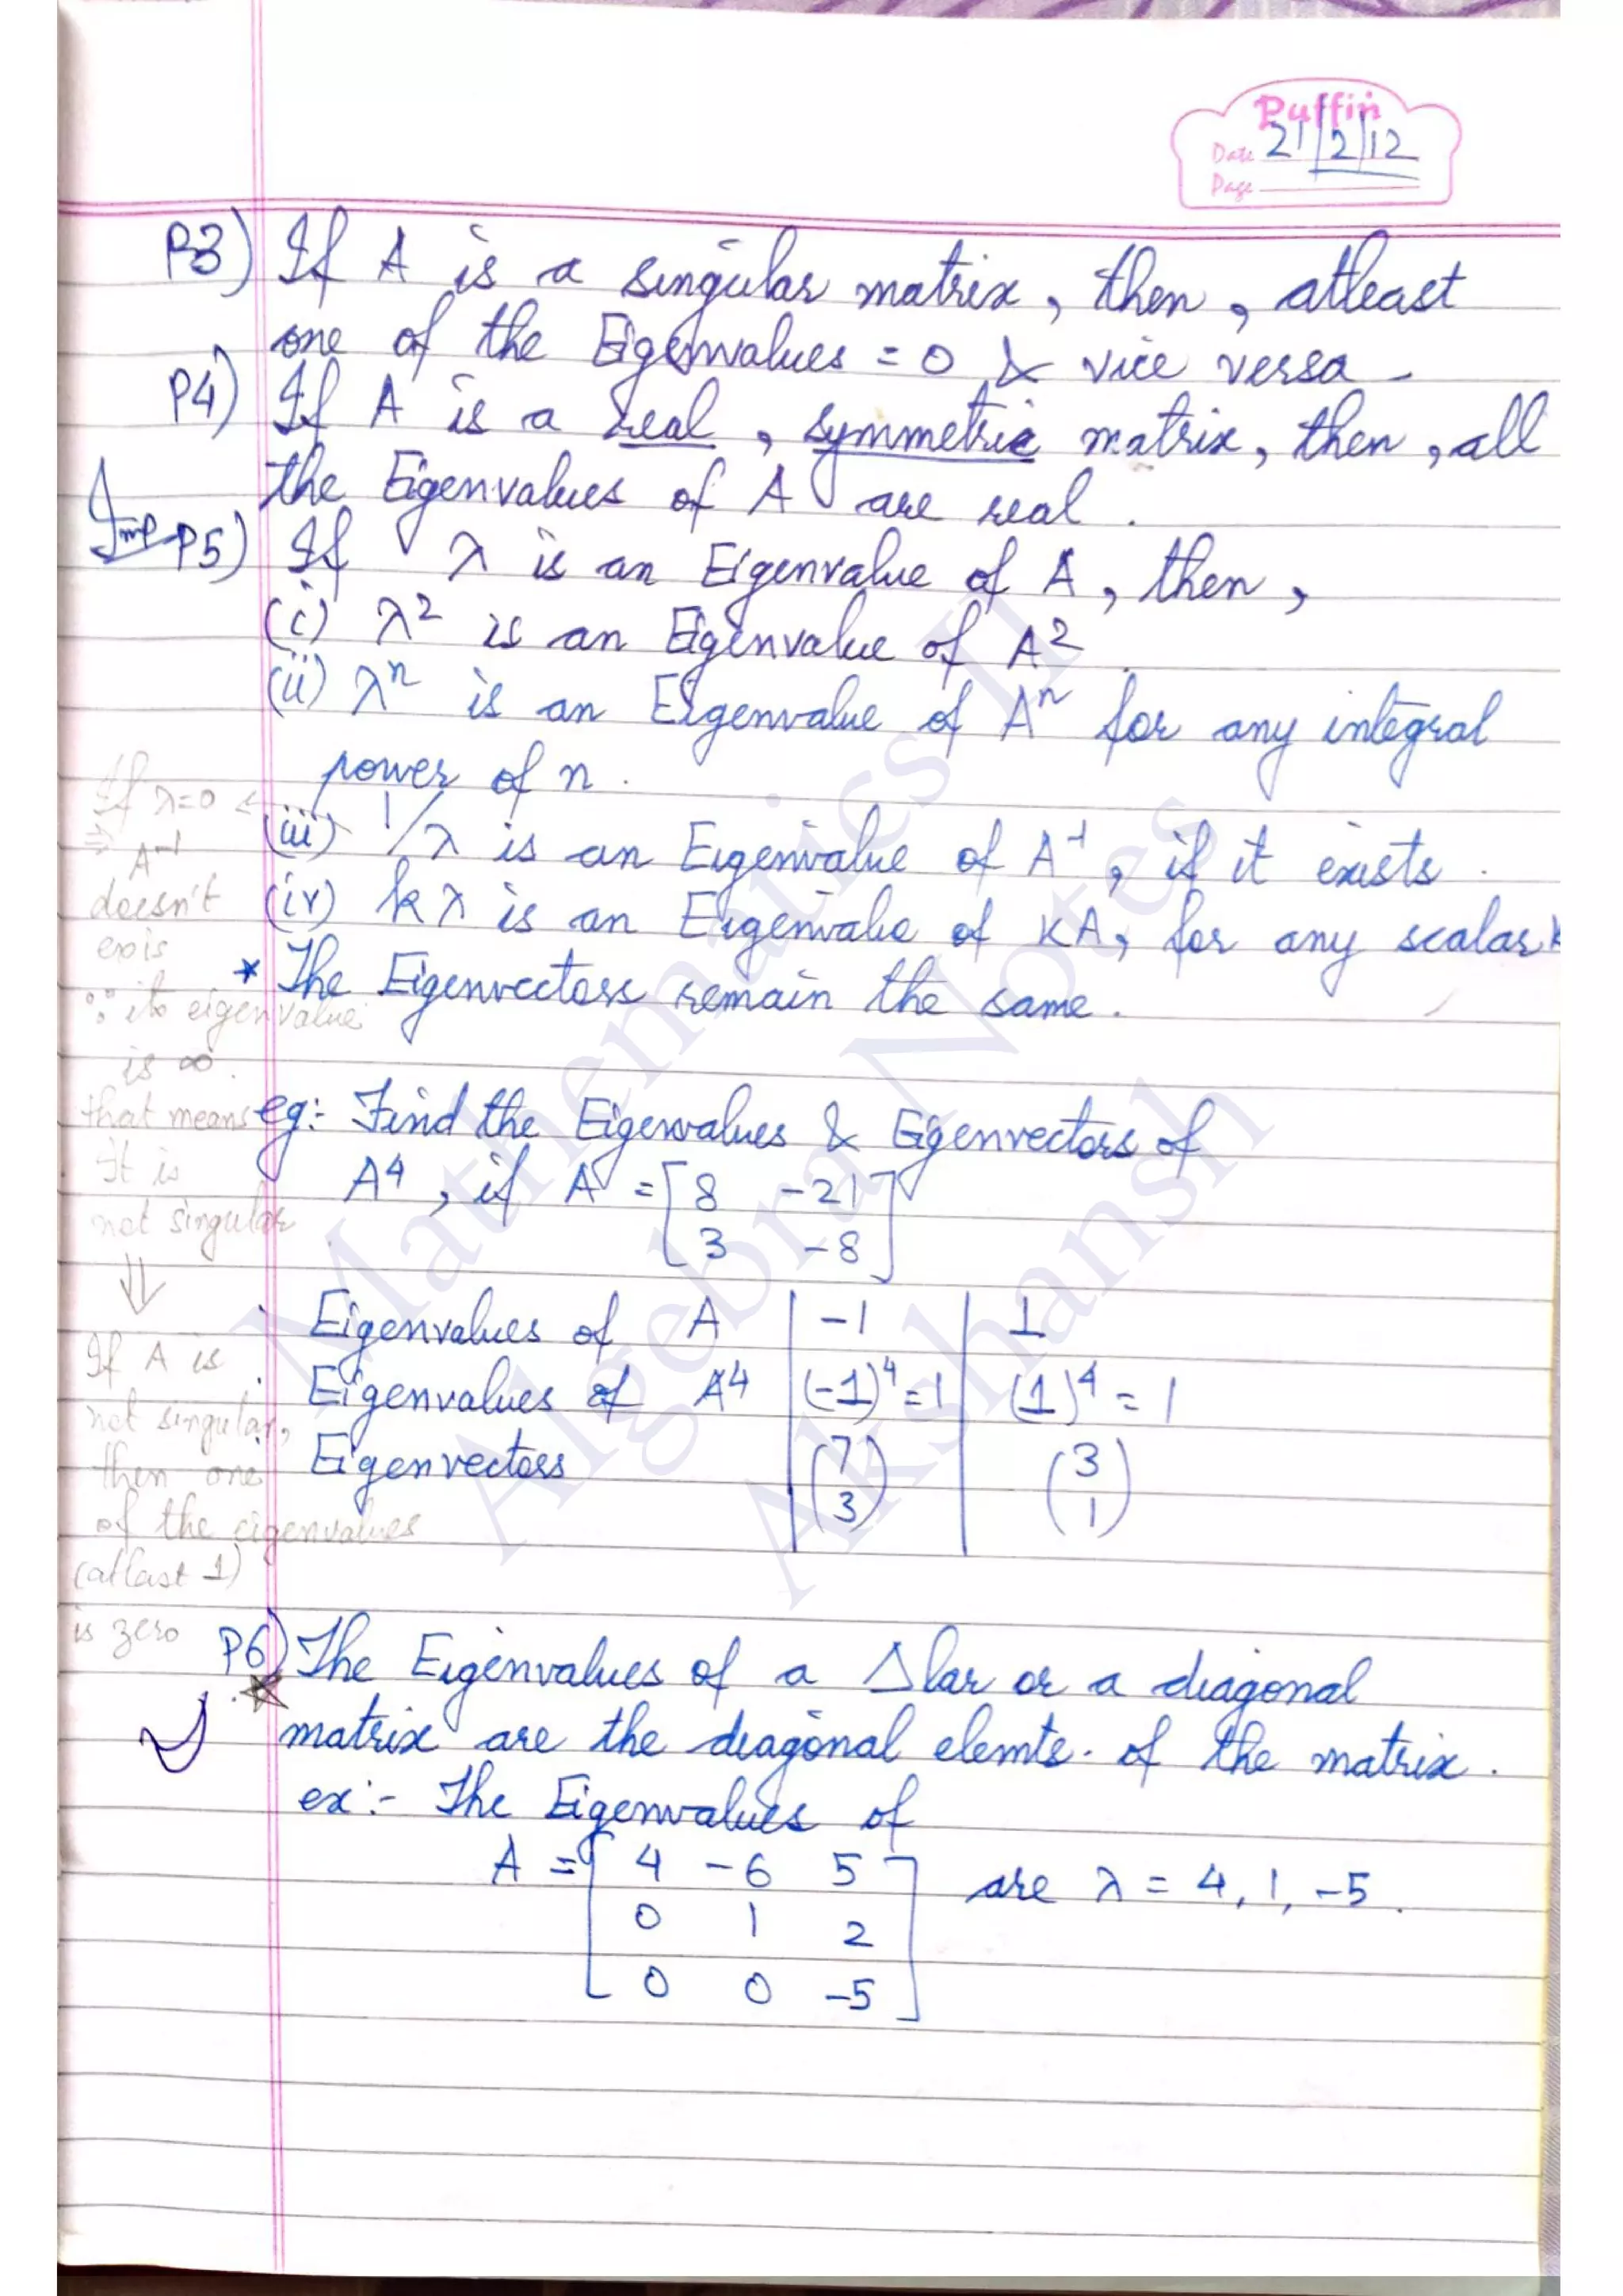 Puffin
Date 21/2/12
Page
P3) If A is a singular matrix, then, atleast
one of the Eigenvalues = 0 & vice versa.
P4) If A is a real, symmetric matrix, then, all
the Eigenvalues of A are real.
Imp P5) If λ is an Eigenvalue of A, then,
(i) λ² is an Eigenvalue of A².
(ii) λⁿ is an Eigenvalue of Aⁿ for any integral
power of n.
(iii) 1/λ is an Eigenvalue of A⁻¹, if it exists.
(iv) kλ is an Eigenvalue of KA, for any scalar k
* The Eigenvectors remain the same.
If λ=0
⇒ A⁻¹
doesn't
exis
∵ its eigenvalue
is ∞.
that means
It is
not singular
⇓
If A is
not singular,
then one
of the eigenvalues
(atlast 1)
is zero
eg:- Find the Eigenvalues & Eigenvectors of
A⁴, if A = [8 -21
3 -8]
Eigenvalues of A | -1 | 1
Eigenvalues of A⁴ | (-1)⁴=1 | (1)⁴ = 1
Eigenvectors | (7 3) | (3 1)
P6) The Eigenvalues of a Δlar or a diagonal
matrix are the diagonal elemts. of the matrix.
ex:- The Eigenvalues of
A = [4 -6 5 are λ = 4, 1, -5.
0 1 2
0 0 -5]
Mathematics II
Algebra Notes
Akshansh